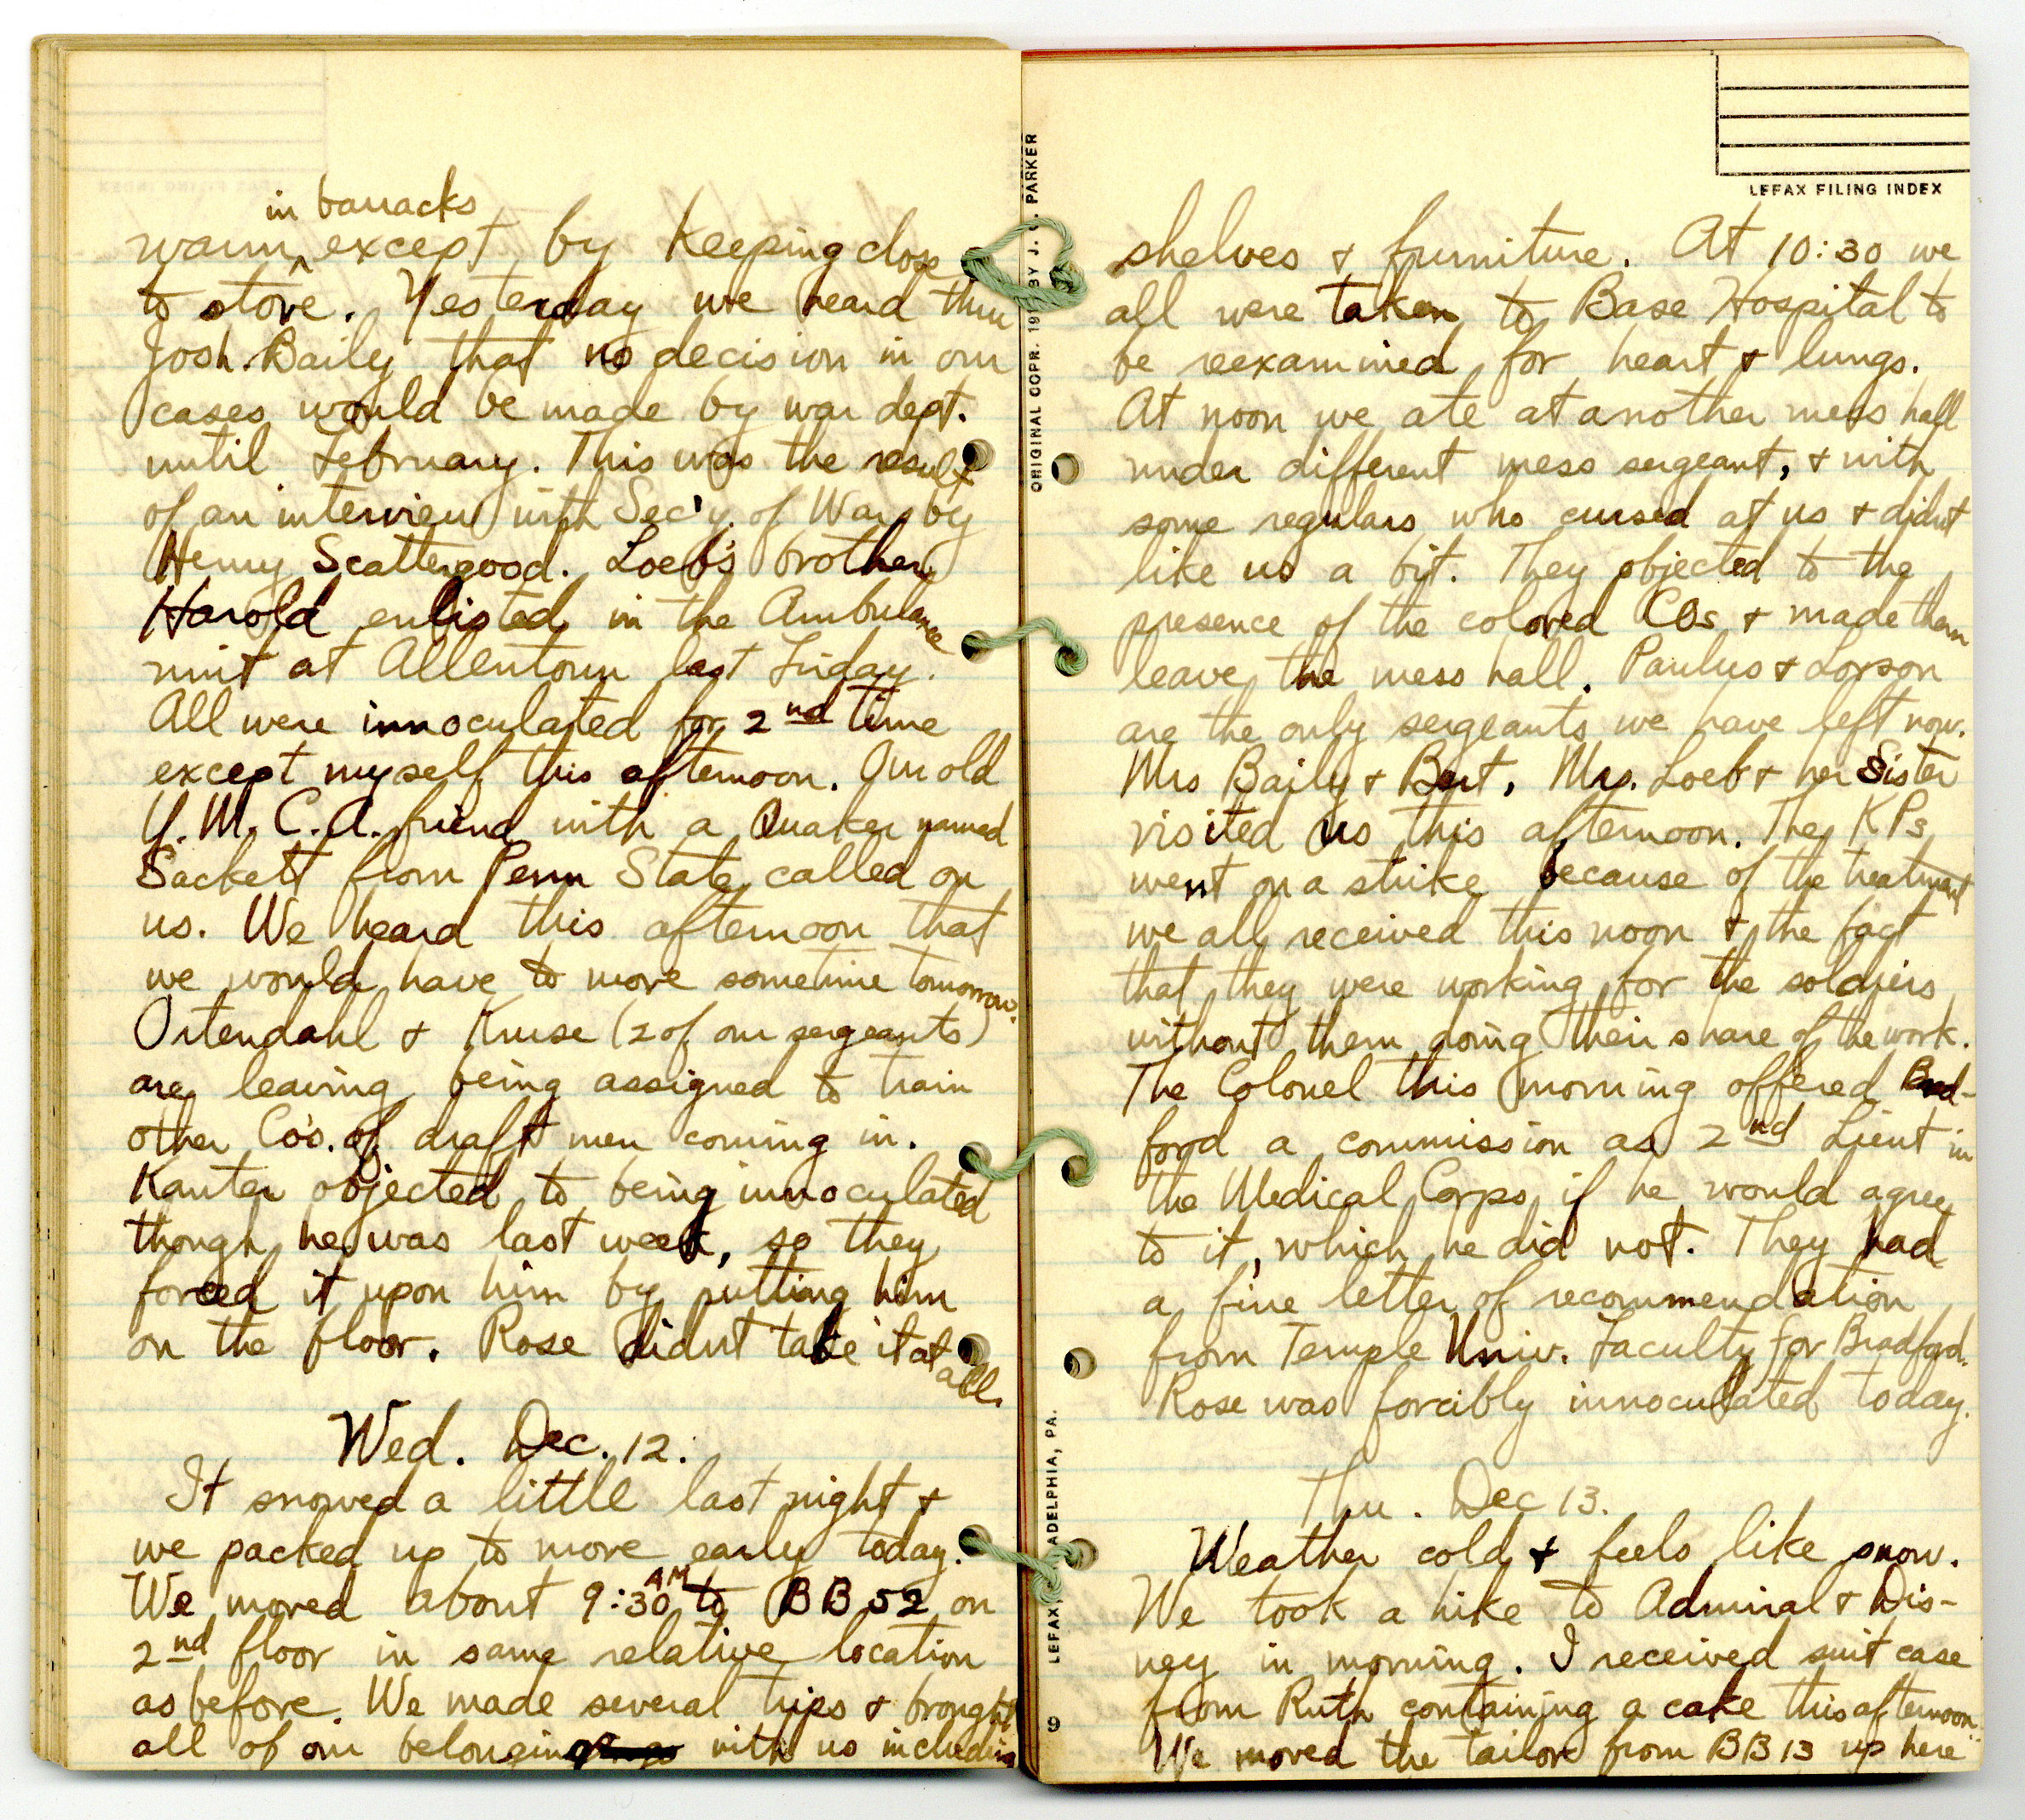 in barracks
warm ^ except by keeping close
to stove. Yesterday we heard thru
Josh. Baily that no decision in our
cases would be made by war dept.
until February. This was the result
of an interview with Sec'y. of War by
Henry Scattergood. Loeb's brother
Harold enlisted in the Ambulance
unit at Allentown last Friday.
All were innoculated for 2nd time
except myself this afternoon. Our old
Y.M.C.A. friend with a Quaker named
Sackett from Penn State called on
us. We heard this afternoon that
we would have to move sometime tomorrow.
Ortendahl & Kruse (2 of our sergeants)
are leaving being assigned to train
other Co's. of draft men coming in.
Kanter objected to being innoculated
though he was last week, so they
forced it upon him by putting him
on the floor. Rose didnt take it at
all.
Wed. Dec. 12.
It snowed a little last night &
we packed up to move early today.
We moved about 9:30 AM to BB 52 on
2nd floor in same relative location
as before. We made several trips & brought
all of our belongings with us including
LEFAX FILING INDEX
shelves & furniture. At 10:30 we
all were taken to Base Hospital to
be reexamined for heart & lungs.
At noon we ate at another mess hall
under different mess sergeant, & with
some regulars who cursed at us & didnt
like us a bit. They objected to the
presence of the colored COs & made them
leave the mess hall. Paulus & Lorson
are the only sergeants we have left now.
Mrs Baily & Bert, Mrs. Loeb & her Sister
visited us this afternoon. The KPs
went on a strike because of the treatment
we all received this noon & the fact
that they were working for the soldiers
without them doing their share of the work.
The Colonel this morning offered Brad-
ford a commission as 2nd Lieut in
the Medical Corps if he would agree
to it, which he did not. They had
a fine letter of recommendation
from Temple Univ. Faculty for Bradford.
Rose was forcibly innoculated today.
Thu. Dec 13.
Weather cold & feels like snow.
We took a hike to Admiral & Dis-
ney in morning. I received suit case
from Ruth containing a cake this afternoon.
We moved the tailor from BB 13 up here
ORIGINAL COPR. 191 BY J. PARKER
LEFAX, ADELPHIA, PA.
9